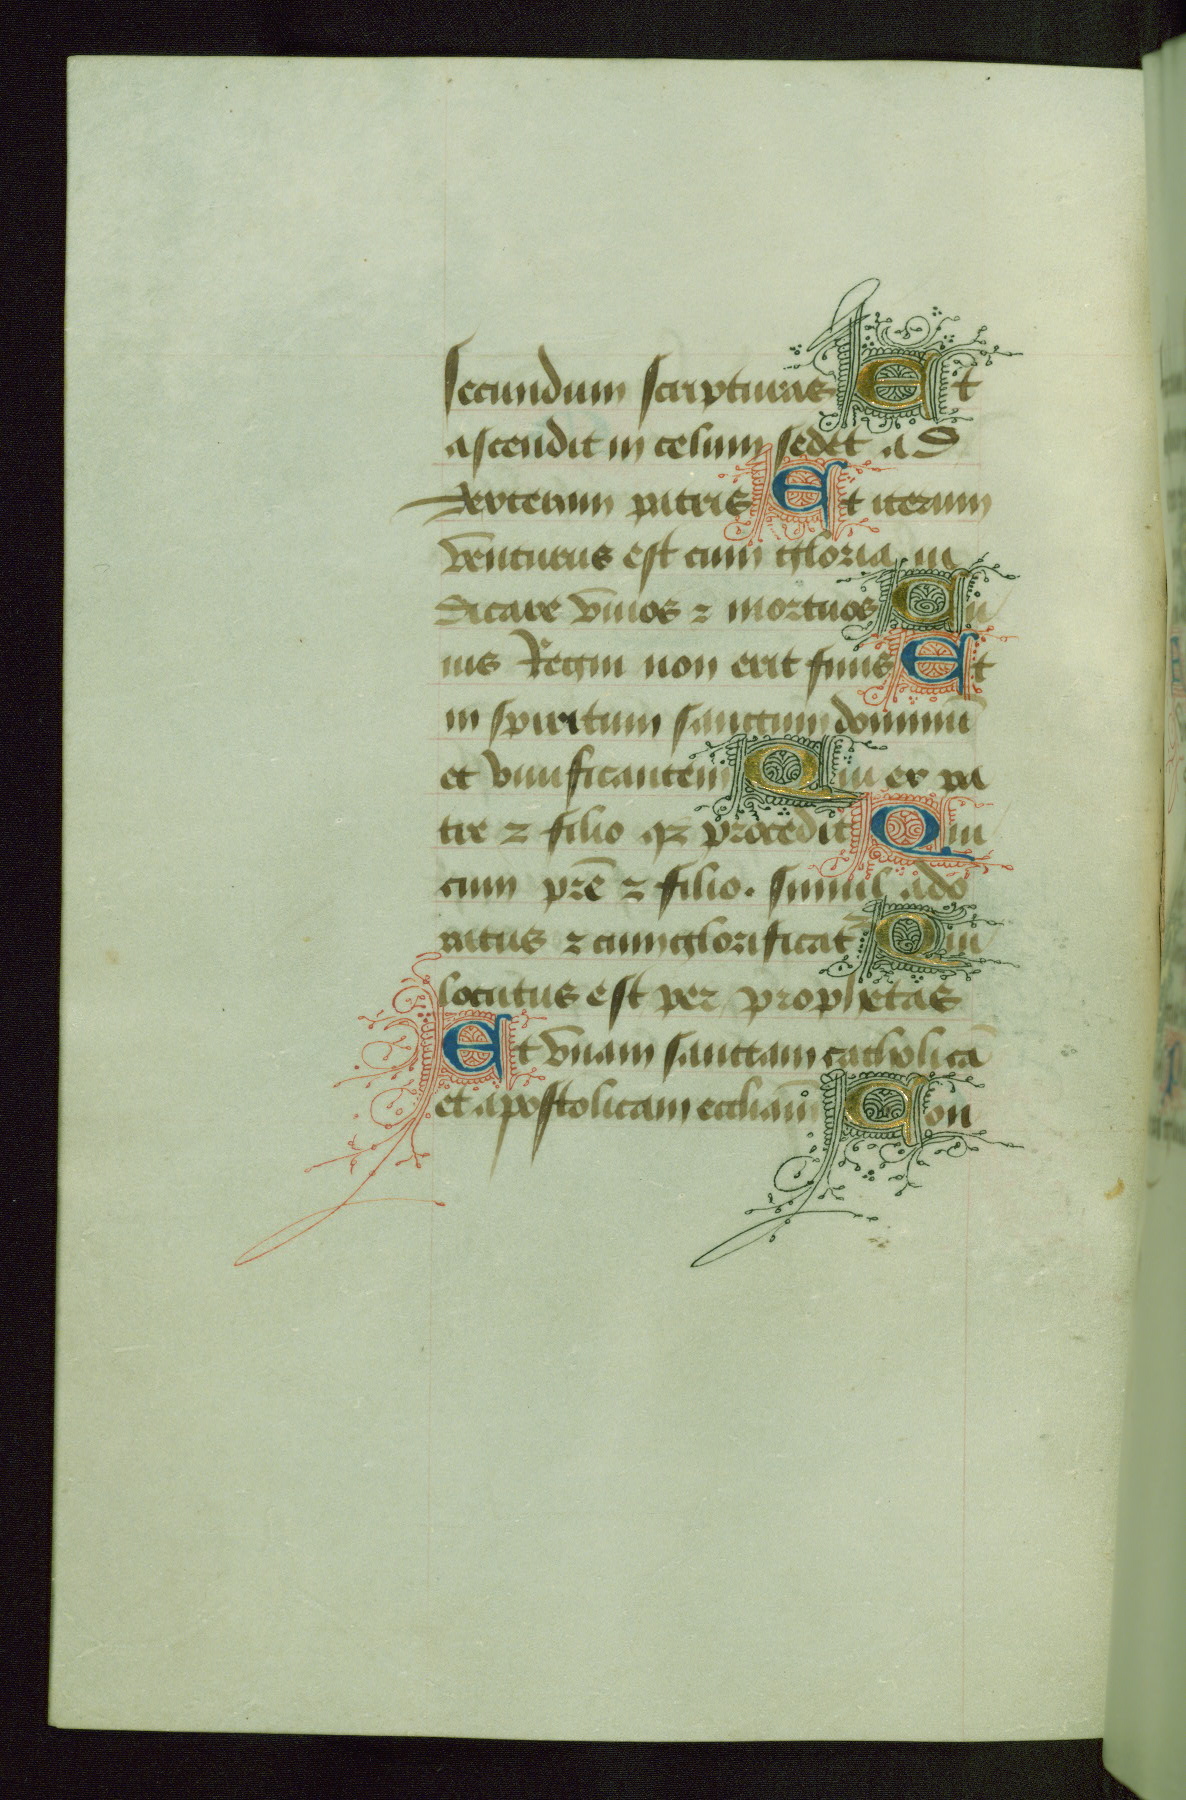 secundum scripturas Et
ascendit in celum sedet ad
dexteram patris Et iterum
venturus est cum gloria iu
dicare viuos ⁊ mortuos Cu
ius Regni non erit finis Et
in spiritum sanctum dominū
et viuificantem Qui ex pa
tre ⁊ filio qꝫ procedit Qui
cum prē ⁊ filio. simul ado
ratus ⁊ cumglorificatꝛ Qui
locutus est per prophetas
Et vnam sanctam catholicā
et apostolicam eccliam̄ Con